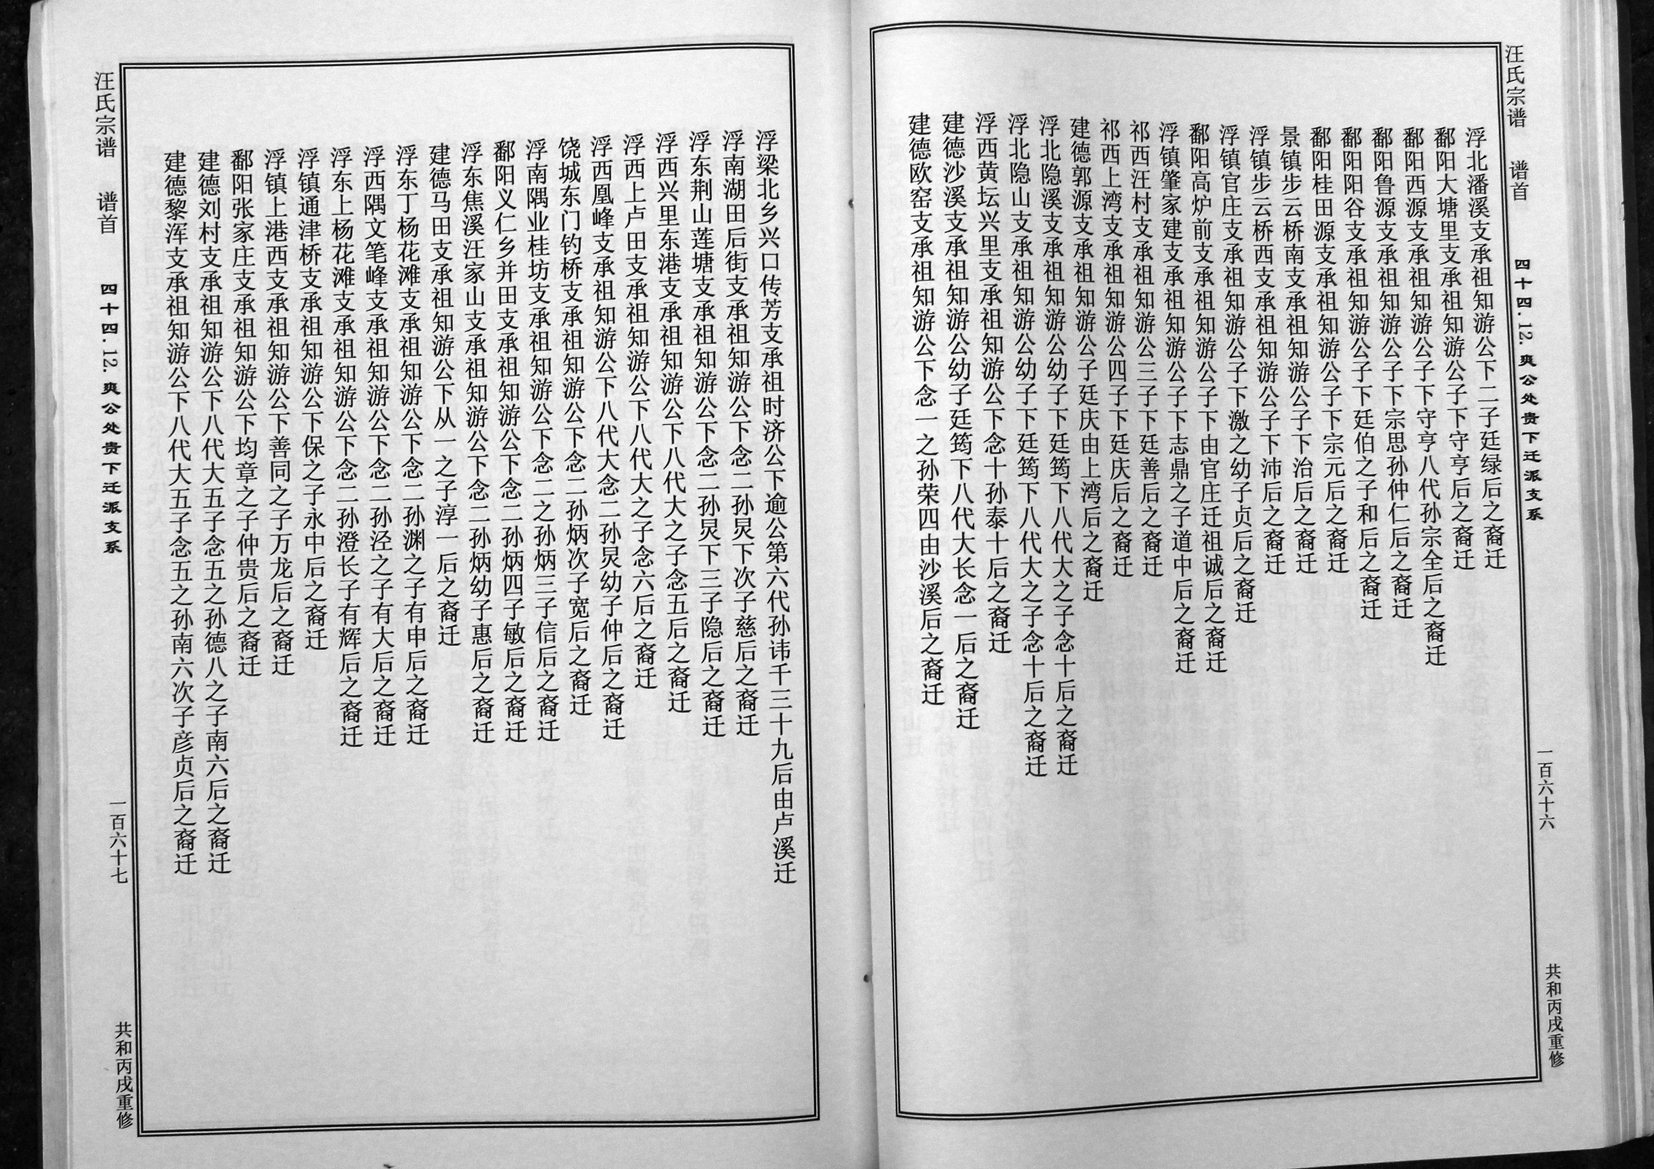 汪氏宗谱 谱首 四十四.12.爽公处贵下迁派支系 一百六十六 共和丙戌重修
浮北潘溪支承祖知游公下二子廷绿后之裔迁
鄱阳大塘里支承祖知游公子下守亨后之裔迁
鄱阳西源支承祖知游公子下守亨八代孙宗全后之裔迁
鄱阳鲁源支承祖知游公子下宗思孙仲仁后之裔迁
鄱阳阳谷支承祖知游公子下廷伯之子和后之裔迁
鄱阳桂田源支承祖知游公子下宗元后之裔迁
景镇步云桥南支承祖知游公子下治后之裔迁
浮镇步云桥西支承祖知游公子下沛后之裔迁
浮镇官庄支承祖知游公子下激之幼子贞后之裔迁
鄱阳高炉前支承祖知游公子下由官庄迁祖诚后之裔迁
浮镇肇家建支承祖知游公子下志鼎之子道中后之裔迁
祁西汪村支承祖知游公三子下廷善后之裔迁
祁西上湾支承祖知游公四子下廷庆后之裔迁
建德郭源支承祖知游公子廷庆由上湾后之裔迁
浮北隐溪支承祖知游公幼子下廷筠下八代大之子念十后之裔迁
浮北隐山支承祖知游公幼子下廷筠下八代大之子念十后之裔迁
浮西黄坛兴里支承祖知游公下念十孙泰十后之裔迁
建德沙溪支承祖知游公幼子廷筠下八代大长念一后之裔迁
建德欧窑支承祖知游公下念一之孙荣四由沙溪后之裔迁
浮梁北乡兴口传芳支承祖时济公下逾公第六代孙讳千三十九后由卢溪迁
浮南湖田后街支承祖知游公下念二孙炅下次子慈后之裔迁
浮东荆山莲塘支承祖知游公下念二孙炅下三子隐后之裔迁
浮西兴里东港支承祖知游公下八代大之子念五后之裔迁
浮西上卢田支承祖知游公下八代大之子念六后之裔迁
浮西凰峰支承祖知游公下八代大念二孙炅幼子仲后之裔迁
饶城东门钓桥支承祖知游公下念二孙炳次子宽后之裔迁
浮南隅业桂坊支承祖知游公下念二之孙炳三子信后之裔迁
鄱阳义仁乡并田支承祖知游公下念二孙炳四子敏后之裔迁
浮东焦溪汪家山支承祖知游公下念二孙炳幼子惠后之裔迁
建德马田支承祖知游公下从一之子淳一后之裔迁
浮东丁杨花滩支承祖知游公下念二孙渊之子有申后之裔迁
浮西隅文笔峰支承祖知游公下念二孙泾之子有大后之裔迁
浮东上杨花滩支承祖知游公下念二孙澄长子有辉后之裔迁
浮镇通津桥支承祖知游公下保之子永中后之裔迁
浮镇上港西支承祖知游公下善同之子万龙后之裔迁
鄱阳张家庄支承祖知游公下均章之子仲贵后之裔迁
建德刘村支承祖知游公下八代大五子念五之孙德八之子南六后之裔迁
建德黎浑支承祖知游公下八代大五子念五之孙南六次子彦贞后之裔迁
汪氏宗谱 谱首 四十四.12.爽公处贵下迁派支系 一百六十七 共和丙戌重修